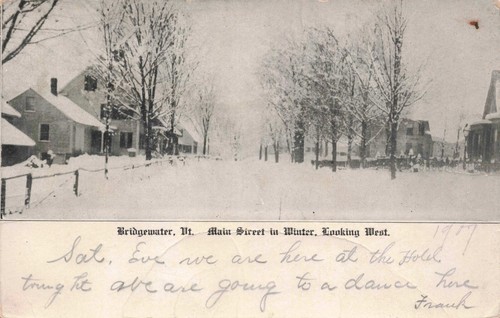 Bridgewater, Vt. Main Street in Winter, Looking West.
1907
Sat, Eve we are here at the Hotel
tonight we are going to a dance here
Frank